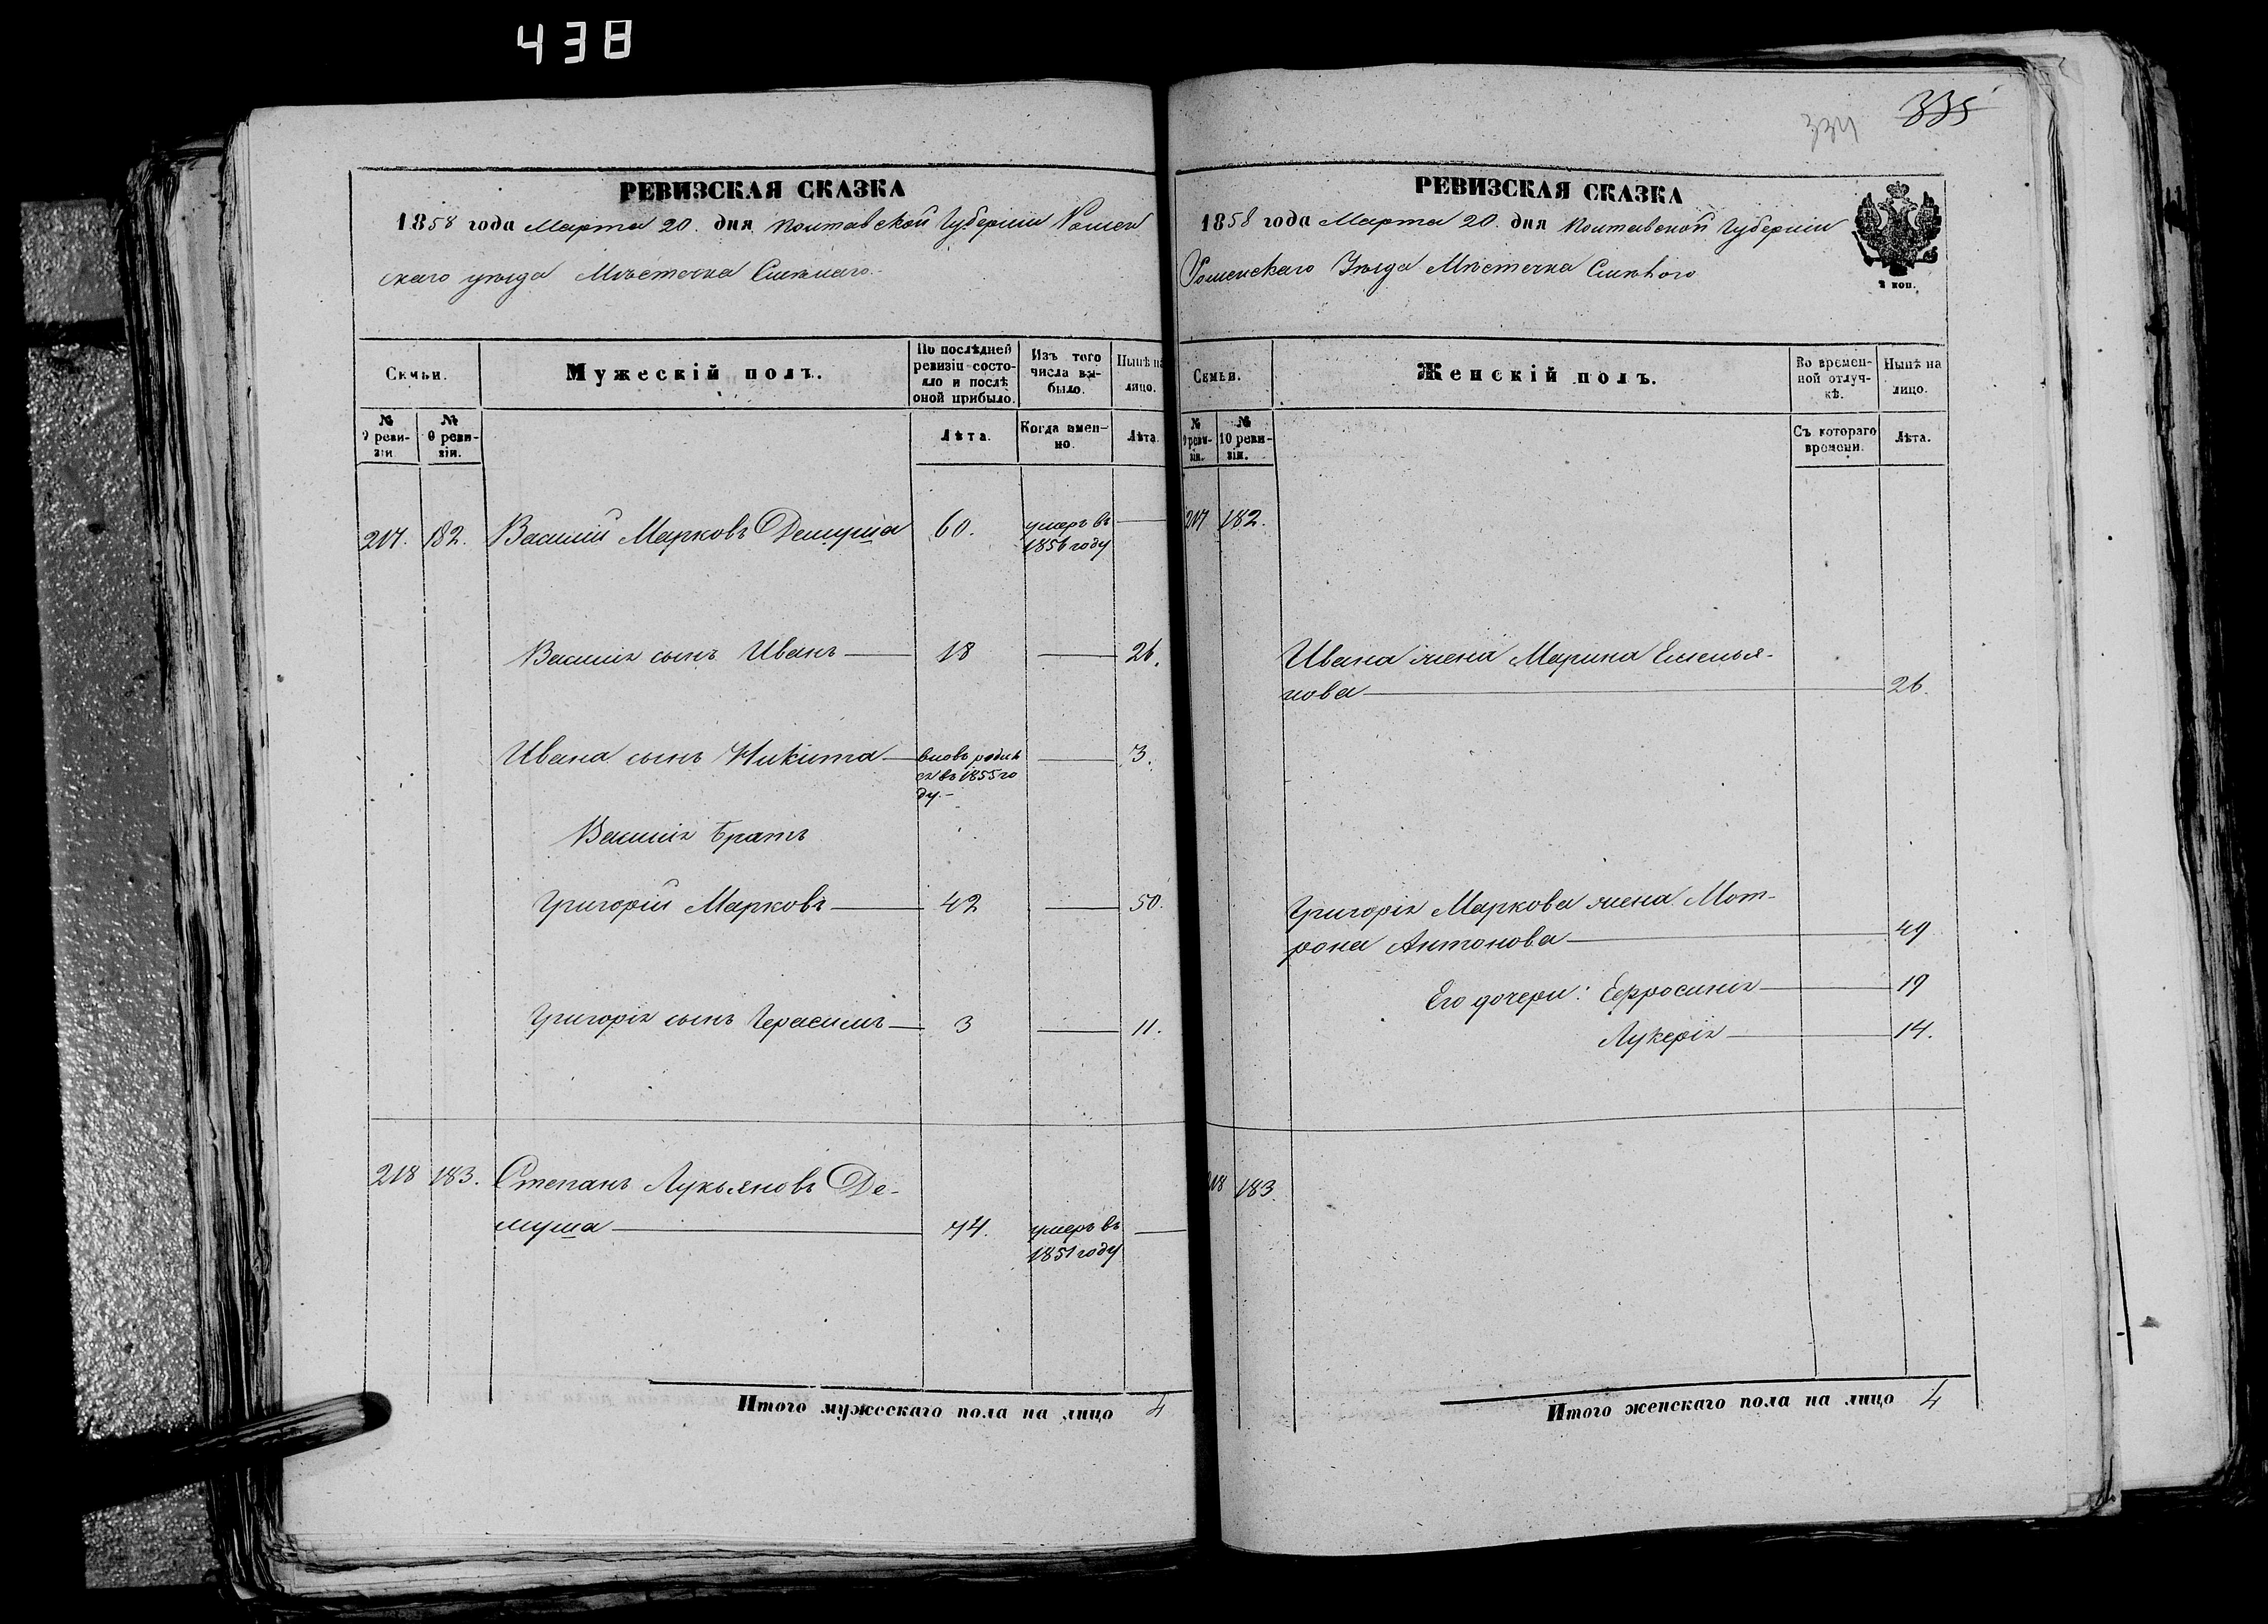 438
РЕВИЗСКАЯ СКАЗКА
1858 года Марта 20. дня Полтавской Губерніи Ромен
скаго уѣзда Мѣстечка Смѣлаго.
Семьи.
Мужескій полъ.
По послѣдней ревизіи состояло и послѣ оной прибыло.
Изъ того числа выбыло.
Нынѣ на лицо.
№ 9 ревизіи
№ 0 ревизіи.
Лѣта.
Когда именно.
Лѣта.
217. 182. Василій Марковъ Демуша 60. умеръ въ 1856 году
Василія сынъ Иванъ 18 26.
Ивана сынъ Никита вновь родил ся въ 1855 го ду. 3.
Василія братъ
Григорій Марковъ 42 50.
Григорія сынъ Герасимъ 3 11.
218 183. Степанъ Лукьяновъ Де-
муша 74. умеръ въ 1851 году
Итого мужескаго пола на лицо 4
334 335
РЕВИЗСКАЯ СКАЗКА
1858 года Марта 20. дня Полтавской Губерніи
Роменскаго Уѣзда Мѣстечка Смѣлого
2 коп.
Семьи.
Женскій полъ.
Во временной отлучкѣ.
Нынѣ на лицо.
№ 9 ревизіи.
№ 10 ревизіи.
Съ котораго времени.
Лѣта.
217 182.
Ивана жена Марина Емелья-
нова 26.
Григорія Маркова жена Мот-
рона Антонова 49
Его дочери: Ефросинія 19
Лукерія 14.
218 183.
Итого женскаго пола на лицо 4